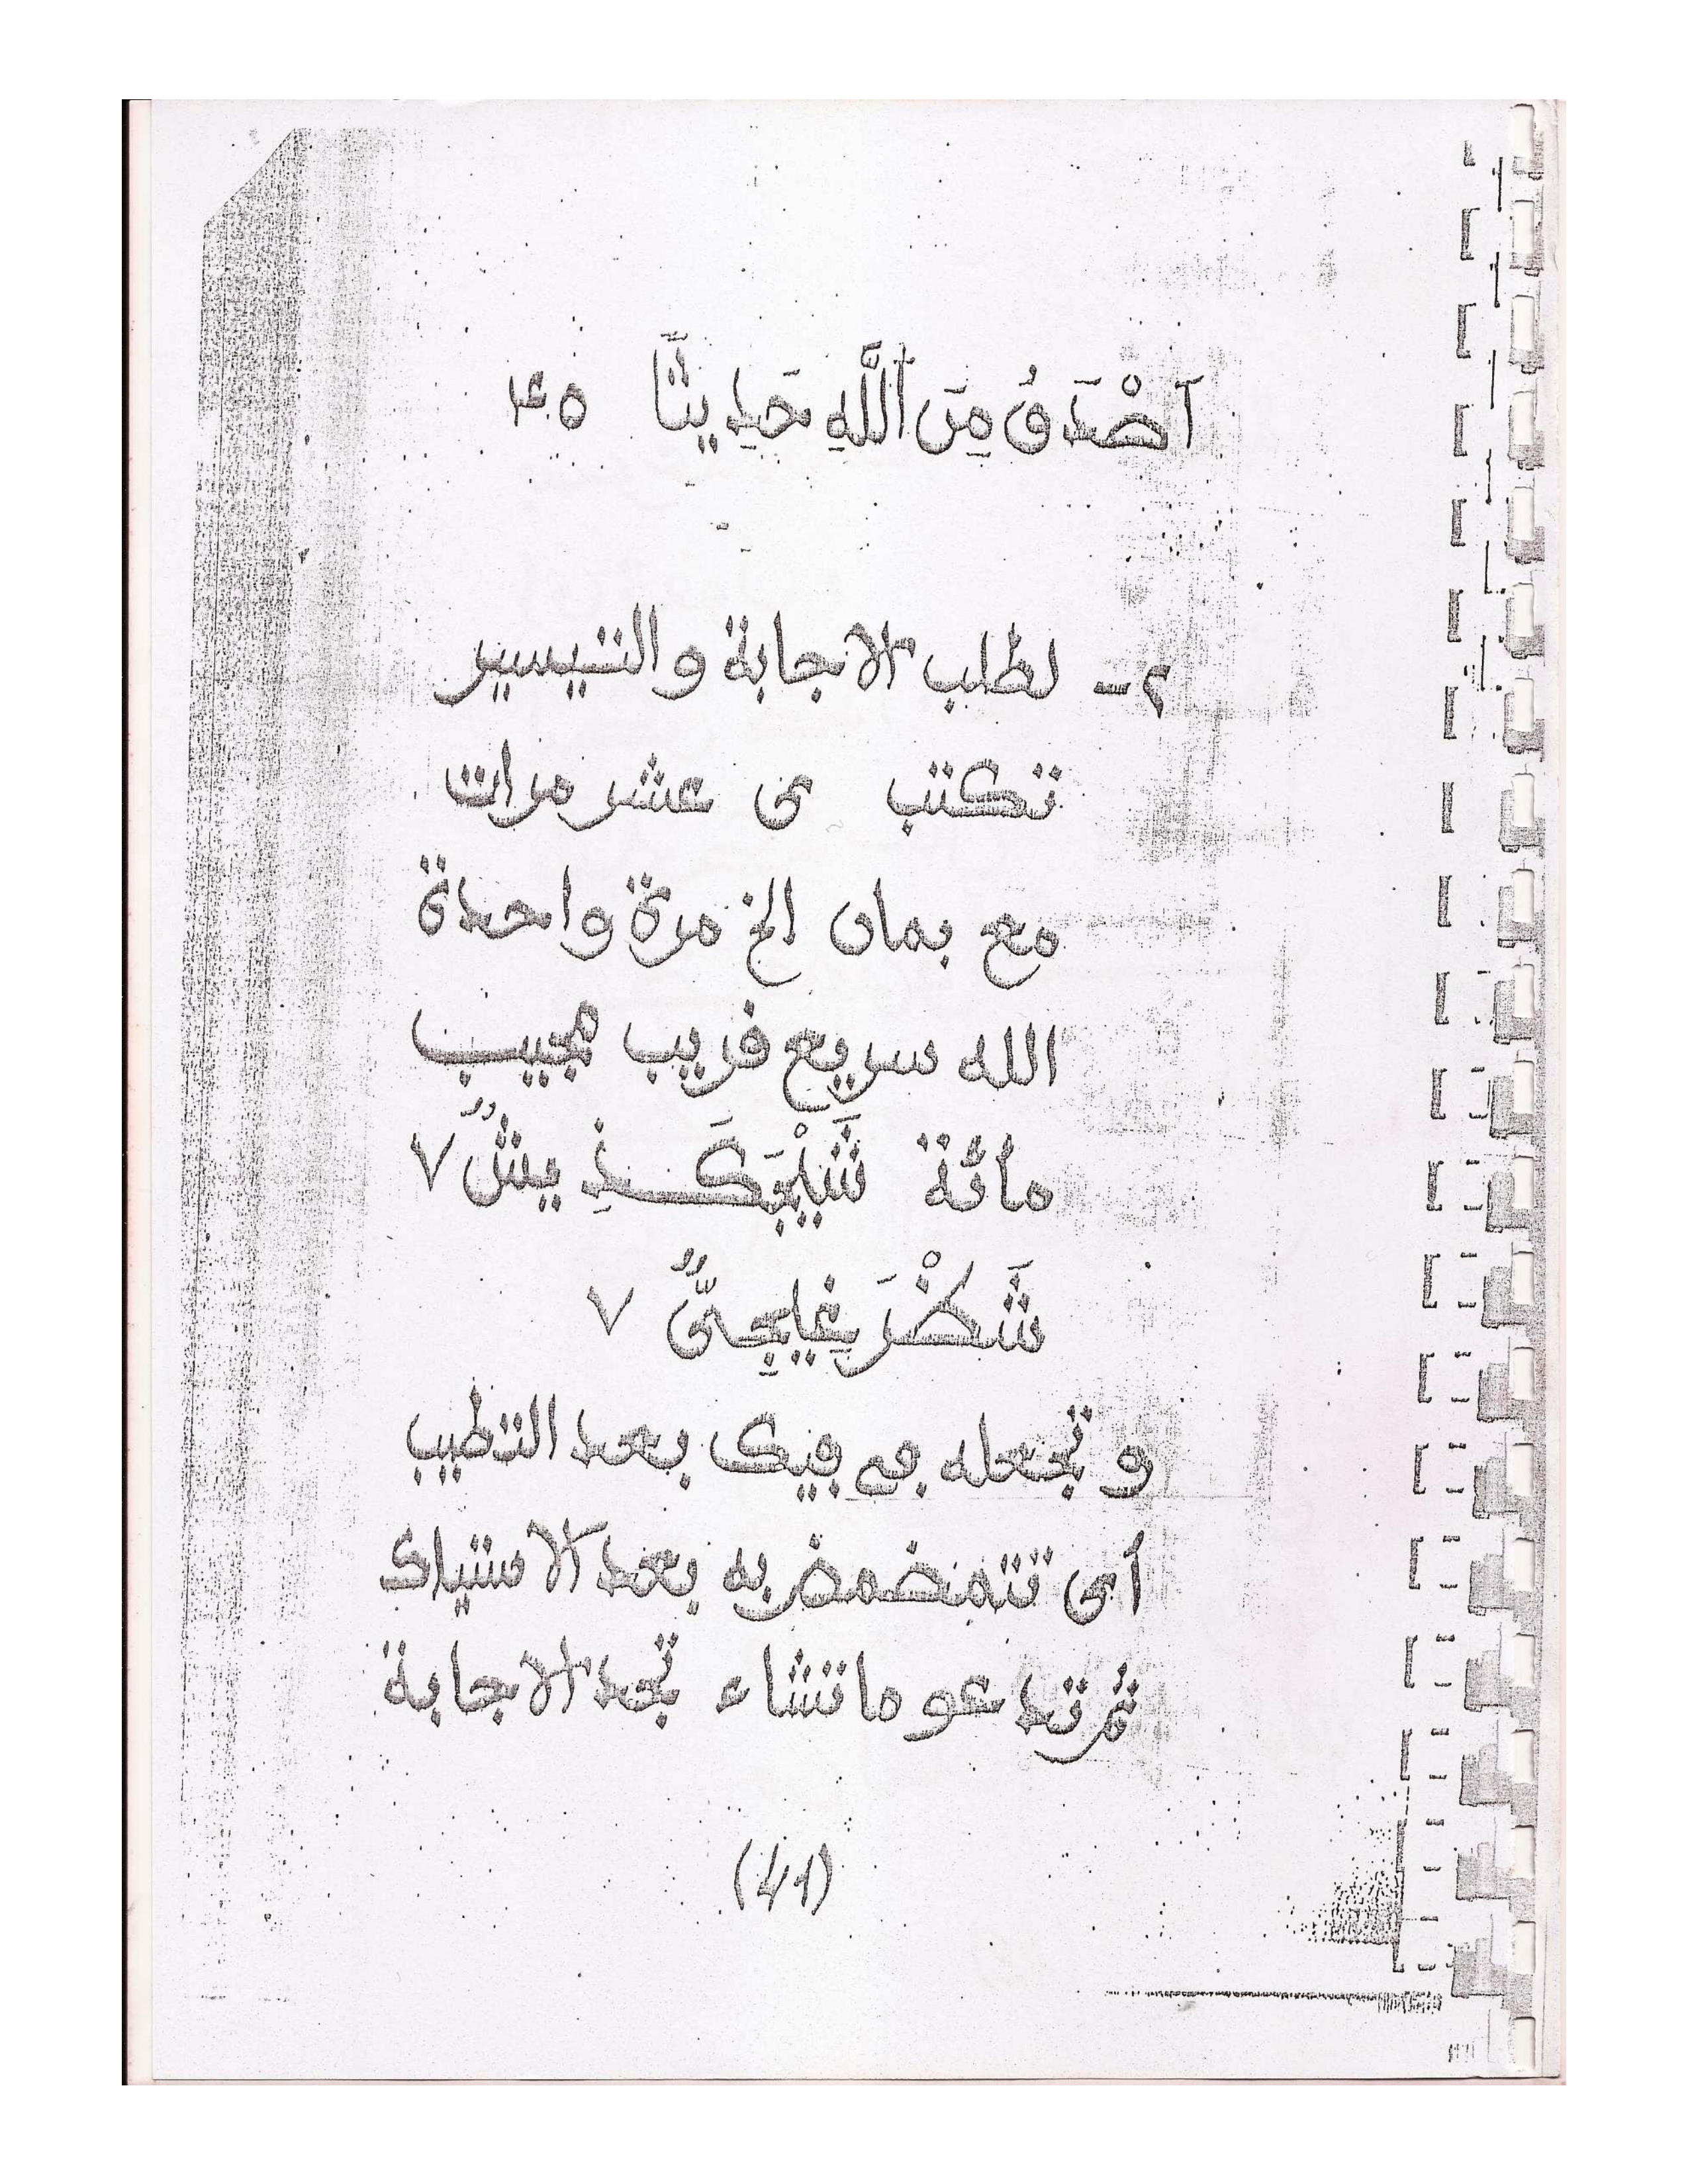 اَصْدَقُ مِنَ اَللَّهِ حَدِيثًا ٤٥
٢- لطلب الاجابة والتيسير
تكتب ى عشر مرات
مع بمان الخ مرة واحدة
الله سريع فريب مجيب
مائة يش ٧
٧
و تجعله في فيك بعد التطيب
أى تتمضمض به بعد الاستياك
ثم تدعو ما تشاء تجد الاجابة
(41)